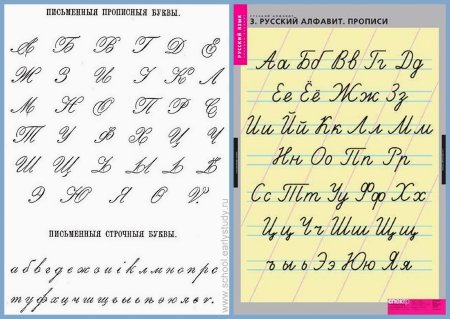 ПИСЬМЕННЫЯ ПРОПИСНЫЯ БУКВЫ.
А Б В Г Д Е
Ж З И І К Л
М Н О П Р С
Т У Ф Х Ц Ч
Ш Щ Ъ Ы Ь Ѣ
Э Ю Я Ѳ Ѵ.
ПИСЬМЕННЫЯ СТРОЧНЫЯ БУКВЫ.
абвгдежзиіклмнопрс
туфхцчшщъыьѣэюяѳѵ.
www.school.earlystudy.ru
РУССКИЙ ЯЗЫК
РУССКИЙ АЛФАВИТ
3. РУССКИЙ АЛФАВИТ. ПРОПИСИ
Аа Бб Вв Гг Дд
Ее Ёё Жж Зз
Ии Йй Кк Лл Мм
Нн Оо Пп Рр
Сс Тт Уу Фф Хх
Цц Чч Шш Щщ
ъ ы ь Ээ Юю Яя
спектр